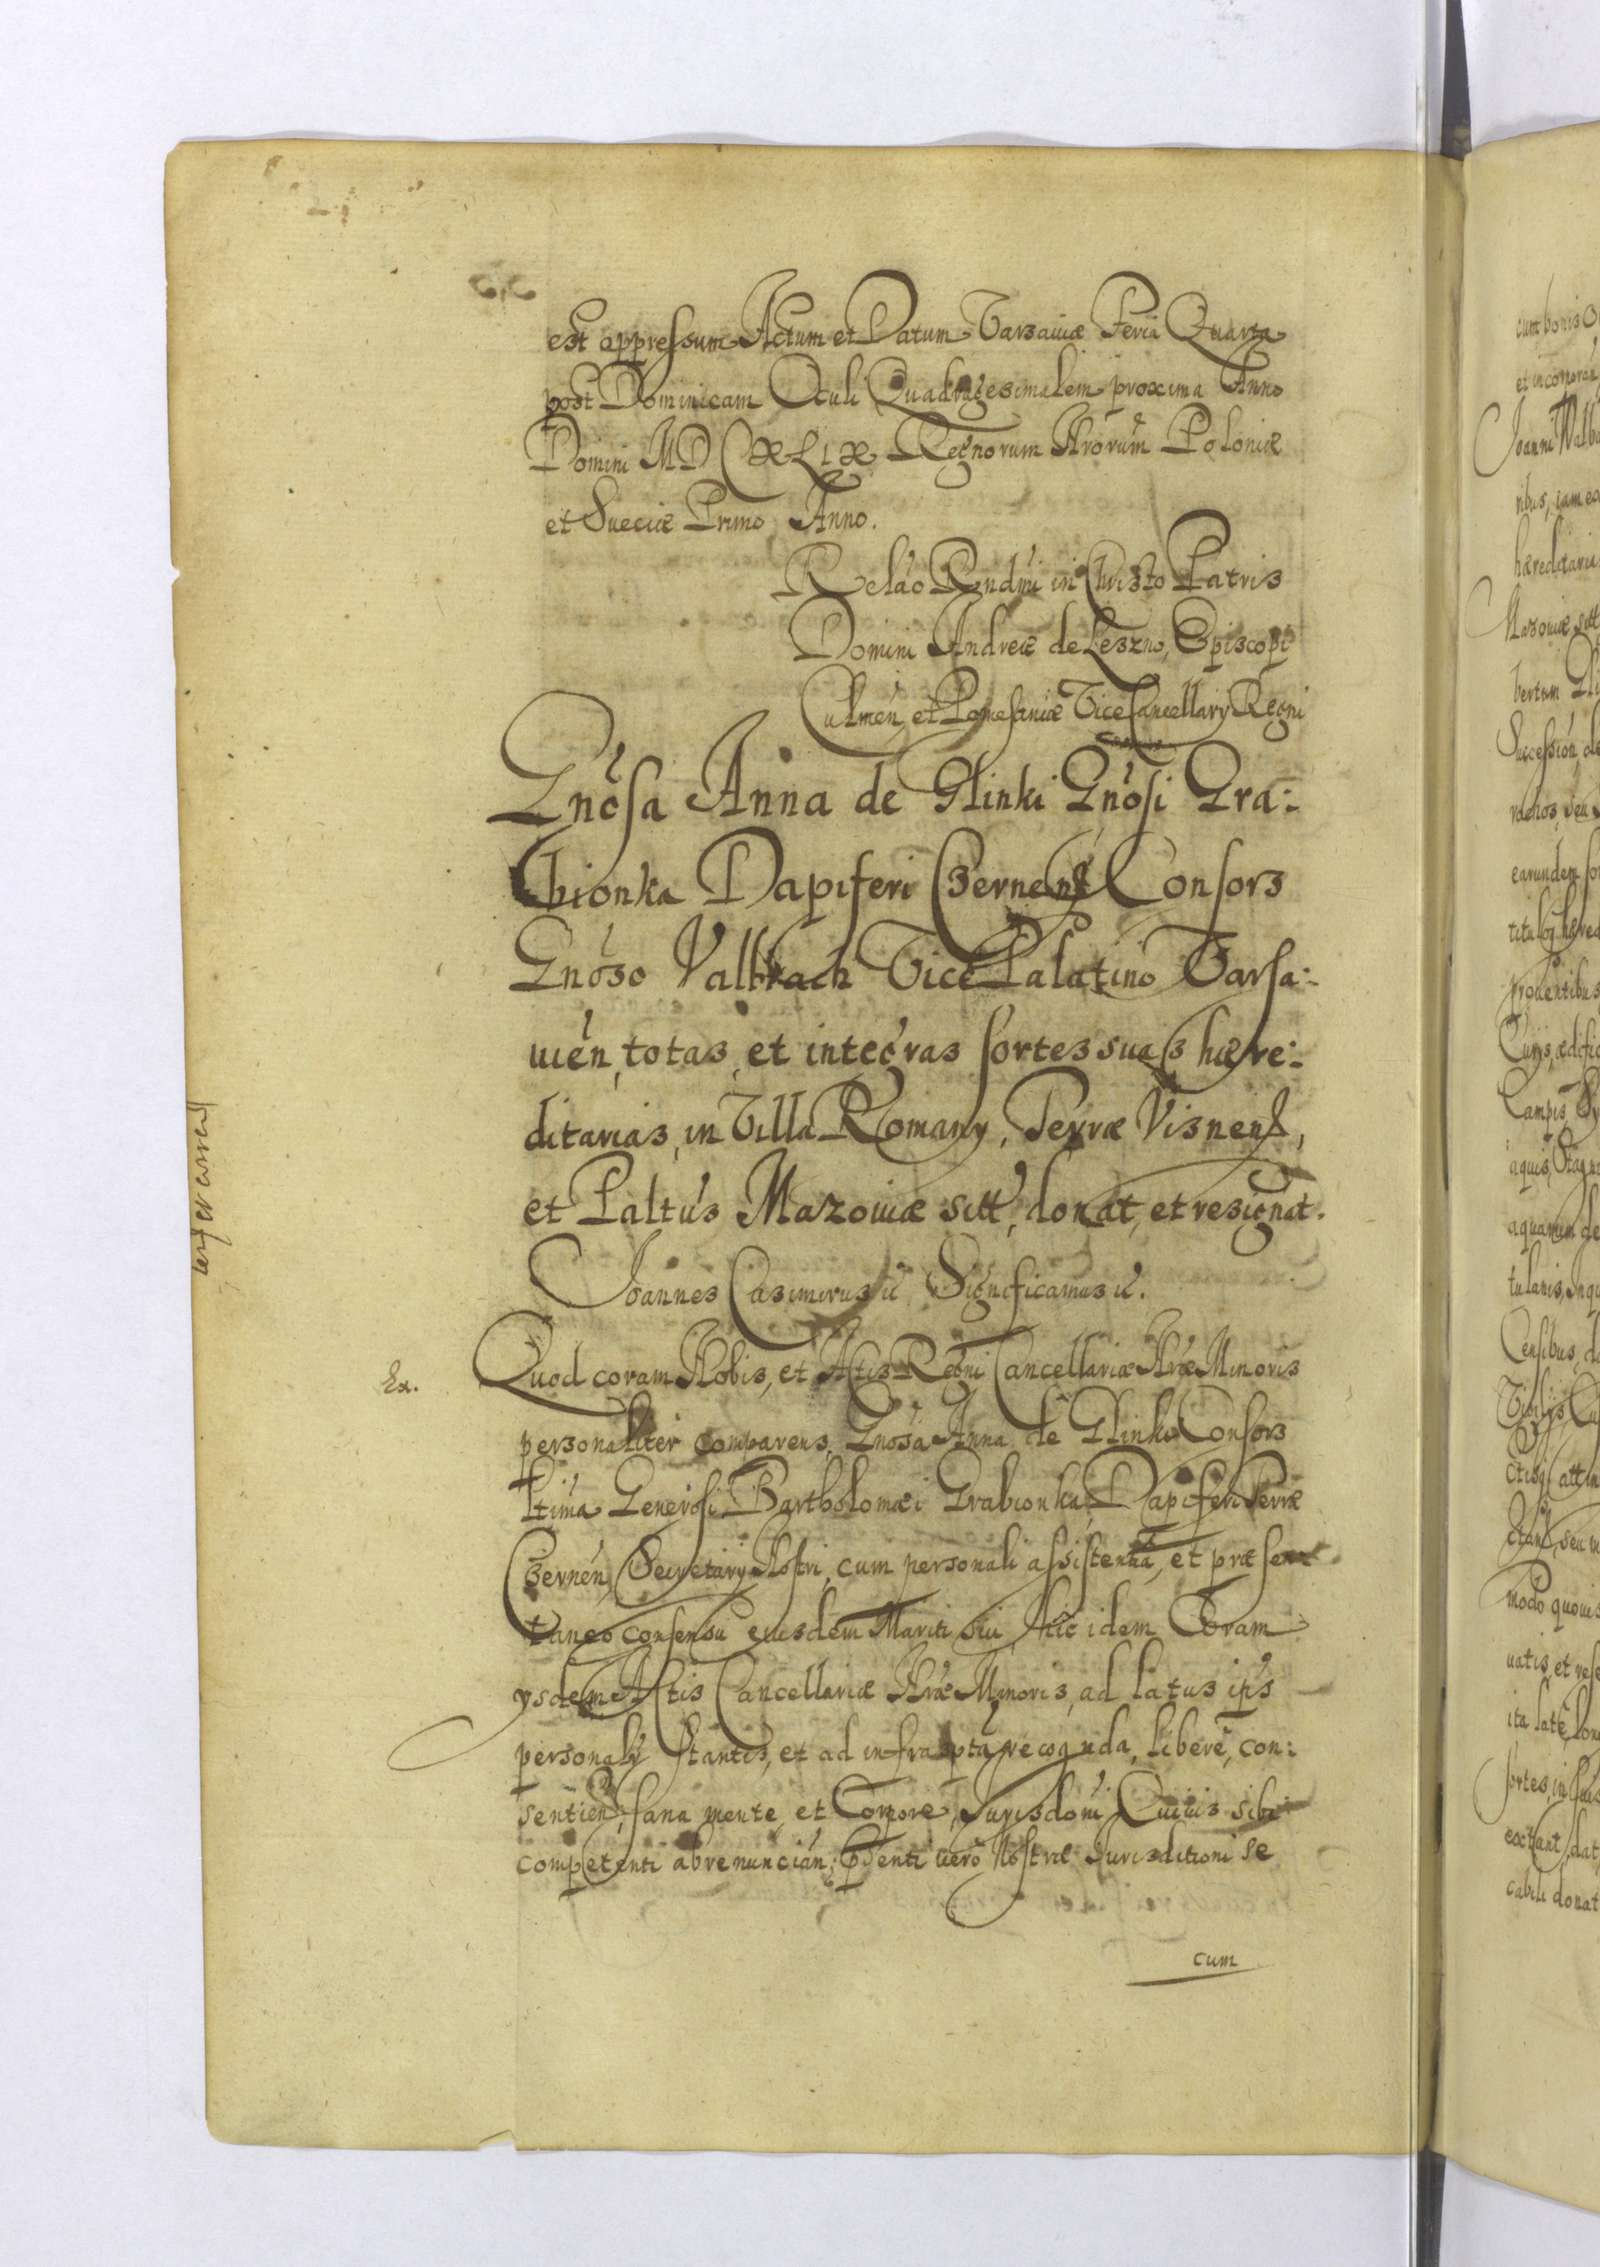 est appressum Actum et Datum Varsaviæ Feria Quarta
post Dominicam Oculi Quadragesimalem proxima Anno
Domini MDCXLIX Regnorum Nrorum Poloniæ
et Sueciæ Primo Anno.
Relao Rndmi in Christo Patris
Domini Andreæ de Leszno, Episcopi
Culmen, et Pomesaniæ Vice Cancellarÿ Regni
Gnosa Anna de Glinki Gnosi Gra:
bionka Dapiferi Czernens Consors
Gnoso Valbach Vice Palatino Varsa:
uien, totas, et integras sortes suas hære:
ditarias, in Villa Romany, Terræ Visnens,
et Paltus Mazouiæ sitt, donat, et resignat.
Joannes Casimirus ic Significamus ic.
Ex.
Quod coram Nobis, et Actis Regni Cancellariæ Nræ Minoris
personaliter comparens, Gnosa Anna de Glinki Consors
Ltima Generosi Bartholomæi Grabionka, Dapiferi Terræ
Czernen, Secretarÿ Nostri, cum personali assistentia, et præsen
taneo consensu eiusdem Mariti sui, Hic idem Coram
ÿsdem Actis Cancellariæ Nræ Minoris, ad latus ips
personalr stantis, et ad infrascpta recognda, libere, con:
sentien, sana mente, et Corpore, Jurisdoni Cuiuis sibi
competenti abrenuncian; Pnti uero Nostræ Jurisditioni se
cum
cum bonis
Joanni Walba
hæreditaria
Mazouiæ sitt
bertum
Succession, de
earundem sor
prouentibus
Campis,
aquis, Stagn
aquarum de
Censibus, d
modo quouis
uatis, et rese
ita late, lon
sortes, in
extant, dat
cabili donat